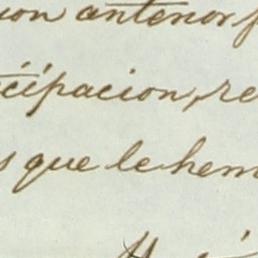 ion anterior f
ticipacion, re
s que le hem